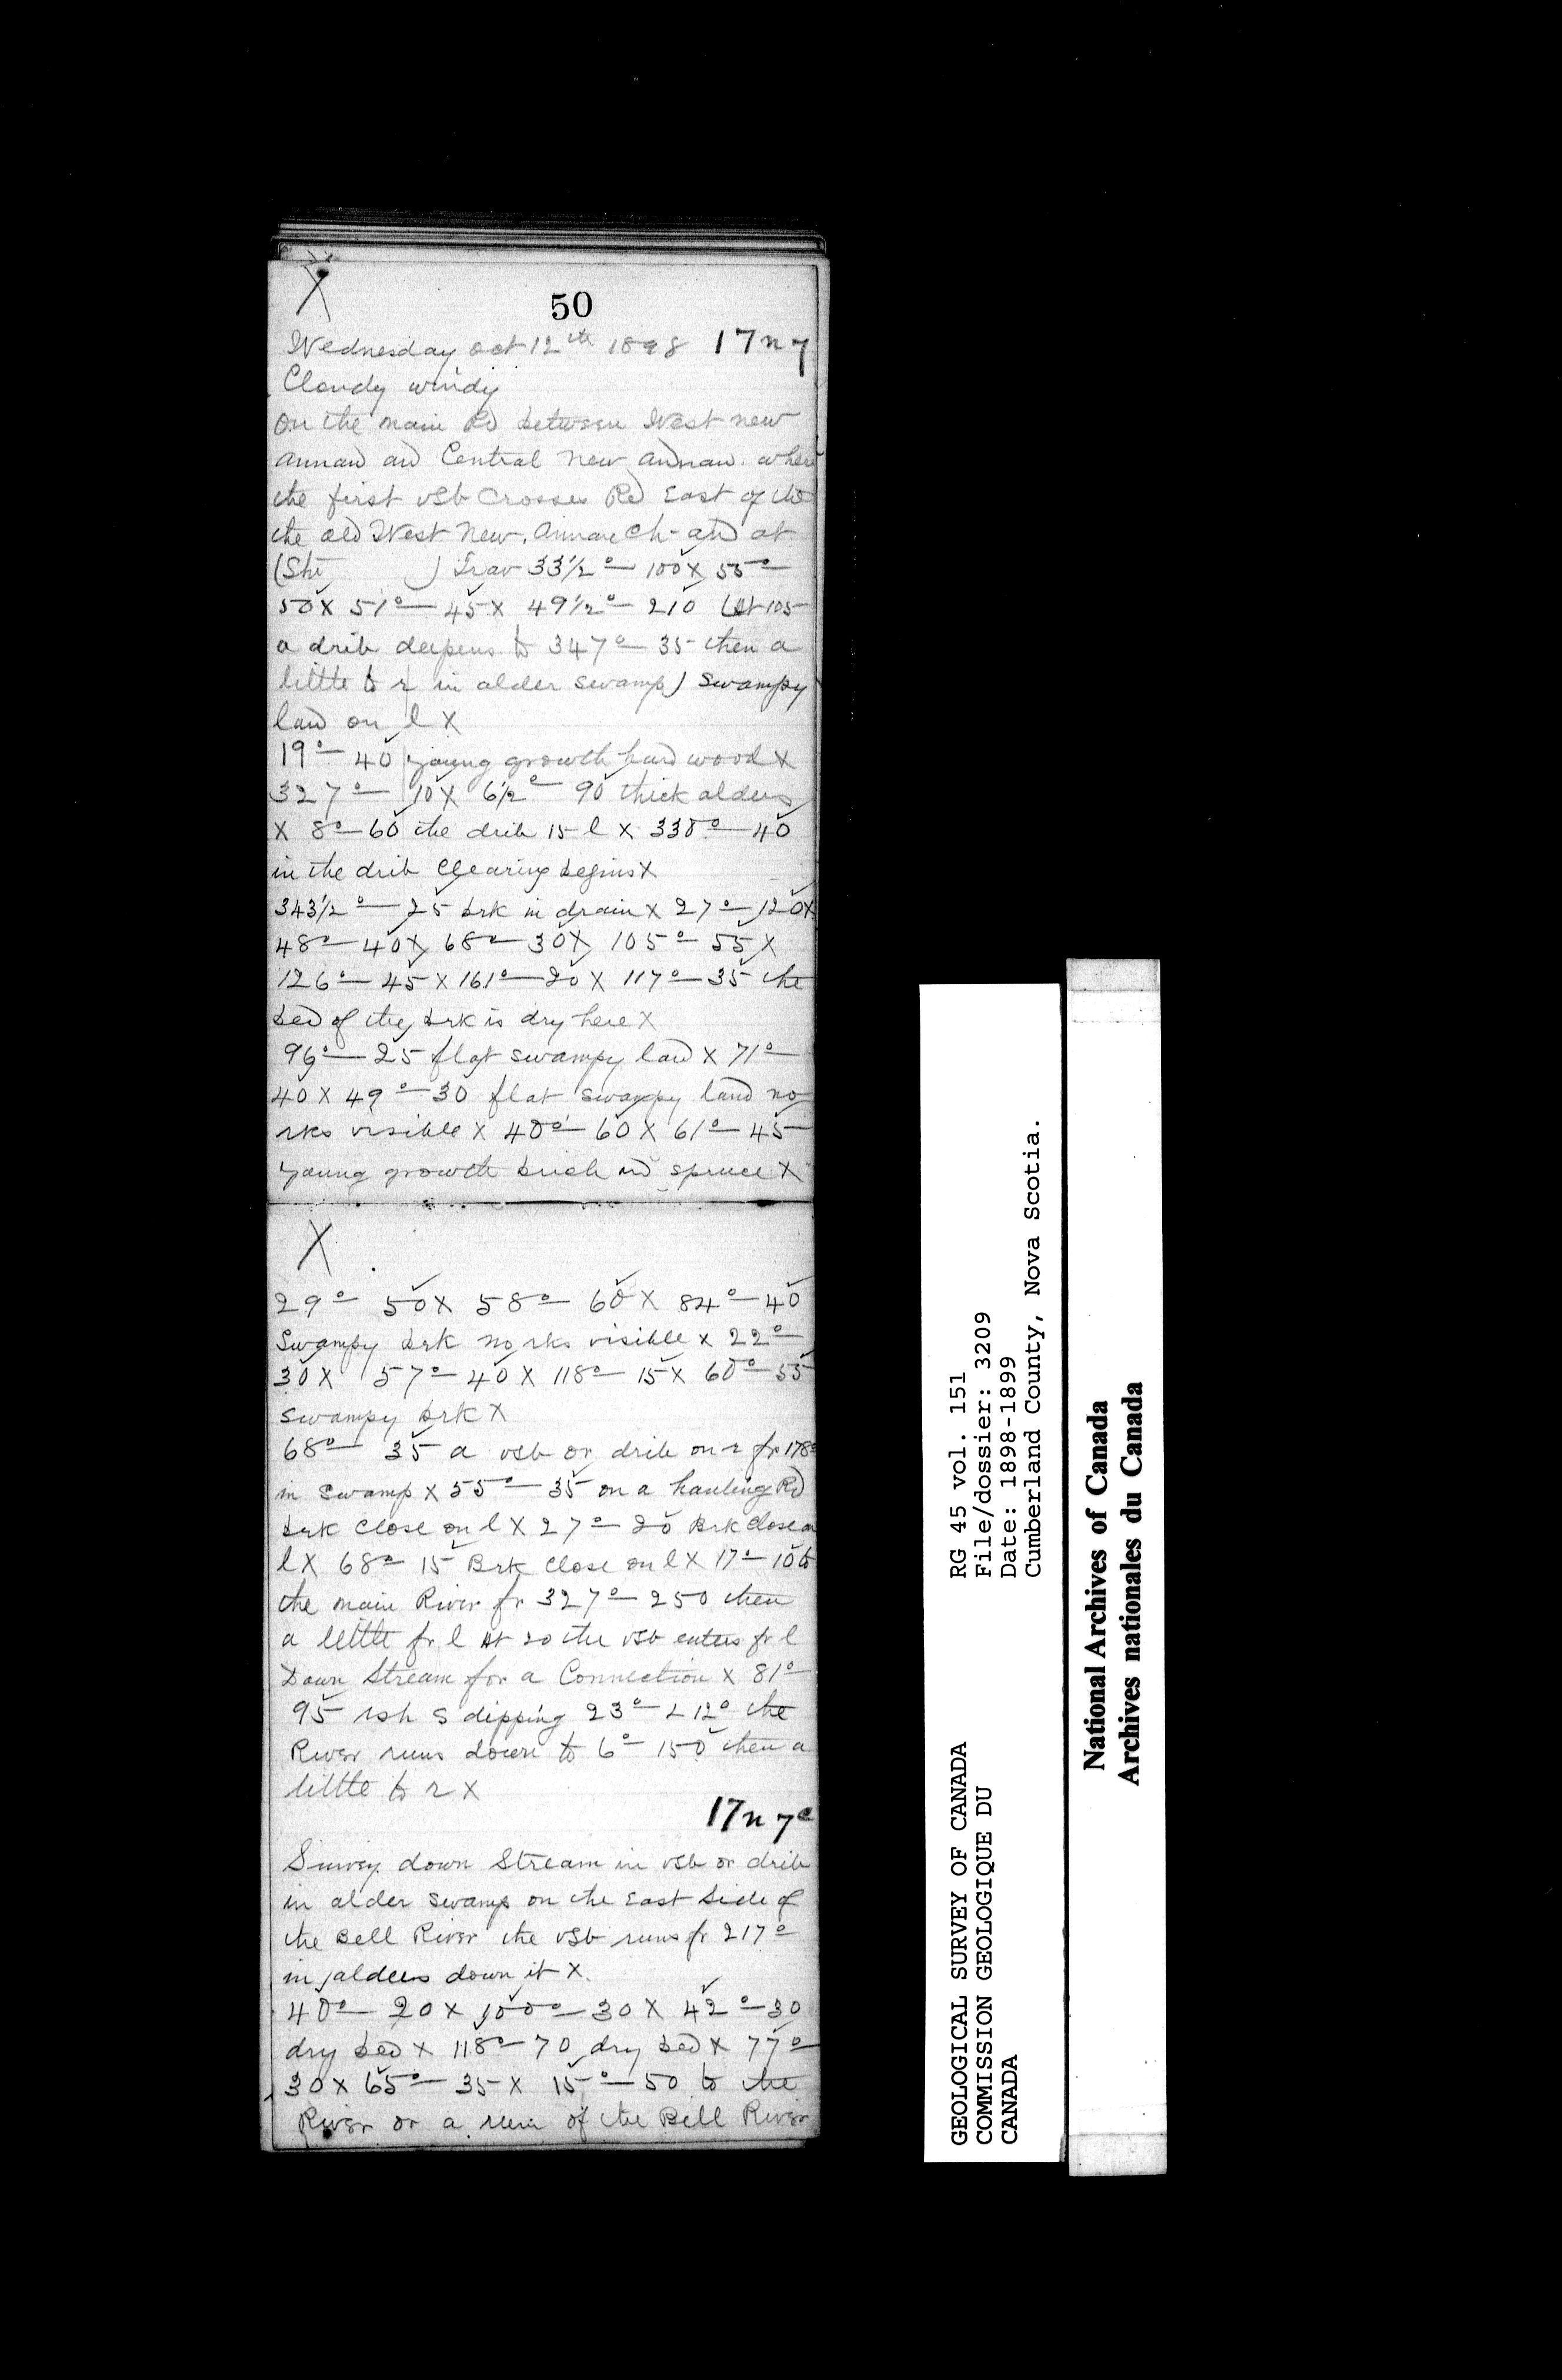 X
50
Wednesday oct 12th 1898 17n7
Cloudy windy
On the main Rd between West new
annan and Central new annan. where
the first vsb Crosses Rd East of the
the old West New. Annan Ch- and at
(Stn ) Trav 33½°— 100 X 55°—
50 X 51°— 45 X 49½°— 210 (At 105
a drib deepens to 347°— 35 then a
little to r in alder swamp) Swampy
land on l X
19°— 40 young growth hard wood X
327°— 10 X 6½°— 90 thick alders
X 8°— 60 the drib 15 l X 338°— 40
in the drib Clearing begins X
343½°— 25 brk in drain X 27°— 120 X
48°— 40 X 68°— 30 X 105°— 55 X
126°— 45 X 161°— 20 X 117°— 35 the
bed of the brk is dry here X
96°— 25 flat swampy land X 71°—
40 X 49°— 30 flat swampy land no
rks visible X 40°— 60 X 61°— 45
young growth birch and spruce X
X
29°— 50 X 58°— 60 X 84°— 40
Swampy brk no rks visible X 22°—
30 X 57°— 40 X 118°— 15 X 60°— 55
swampy brk X
68°— 35 a vsb or drib on r fr 178°
in swamp X 55°— 35 on a hauling Rd
brk close on l X 27°— 20 Brk close on
l X 68°— 15 Brk close on l X 17°— 10 to
the main River fr 327°— 250 then
a little fr l At 20 the vsb enters fr l
Down Stream for a Connection X 81°—
95 rsh S dipping 23°— L 12° the
River runs down to 6°— 150 then a
little to r X
17n7a
Survey down Stream in vsb or drib
in alder swamp on the East Side of
the Bell River the vsb runs fr 217°
in alders down it X.
40°— 20 X 100°— 30 X 42°— 30
dry bed X 118°— 70 dry bed X 77°—
30 X 65°— 35 X 15°— 50 to the
River or a run of the Bell River
GEOLOGICAL SURVEY OF CANADA
COMMISSION GEOLOGIQUE DU
CANADA
RG 45 vol. 151
File/dossier: 3209
Date: 1898-1899
Cumberland County, Nova Scotia.
National Archives of Canada
Archives nationales du Canada